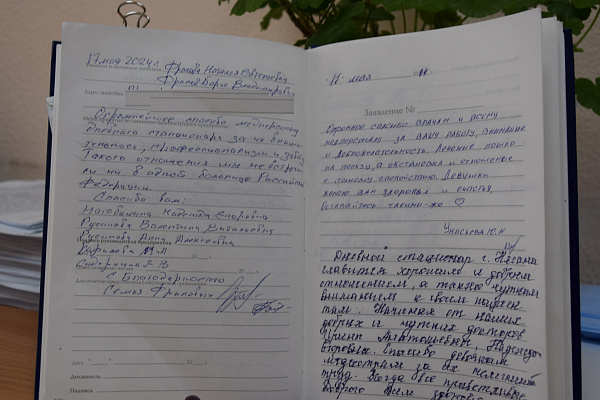 17 мая 2024 г. Фролова Наталья
Фролов Борис Владимирович
Огромнейшее спасибо медперсоналу
дневного стационара за их внима-
тельность, профессионализм и заботу.
Такого отношения мы не встре-
ли ни в одной больнице Российской
Федерации.
Спасибо вам:
Надежда Егоровна
Русинова Валентина Витальевна
Русинова Анна Алексеевна
С Благодарностью
Семья Фроловых
Дата
Должность
Подпись
17 мая
Заявление №
Огромное спасибо врачам и всему
медперсоналу за вашу работу, внимание
и доброжелательность. Лечение пошло
на пользу, а обстановка и отношение
к полному спокойствию. Девушки
желаю вам здоровья и счастья,
Оставайтесь такими же ♡
Ю.Н
Дневной стационар г. Нягани
славится хорошим и добрым
отношением, а также чутким
вниманием к своим пациен-
там. Начиная от наших
добрых и чутких докторов
Анатольевны, Надежды
Егоровны. Спасибо девочкам
медсестрам за их нелегкий
труд. Всегда все приветливые
всем здоровья